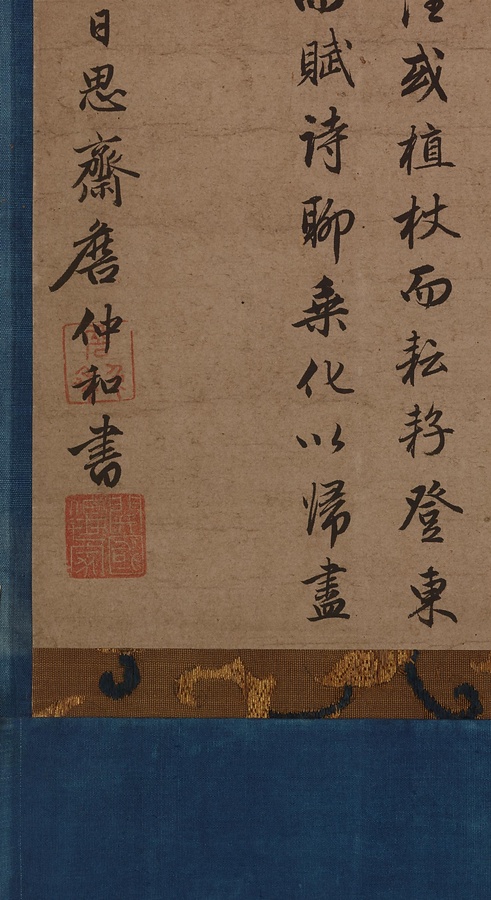 往或植杖而耘耔登東
而賦詩聊乗化以歸盡
日思齋詹仲和書